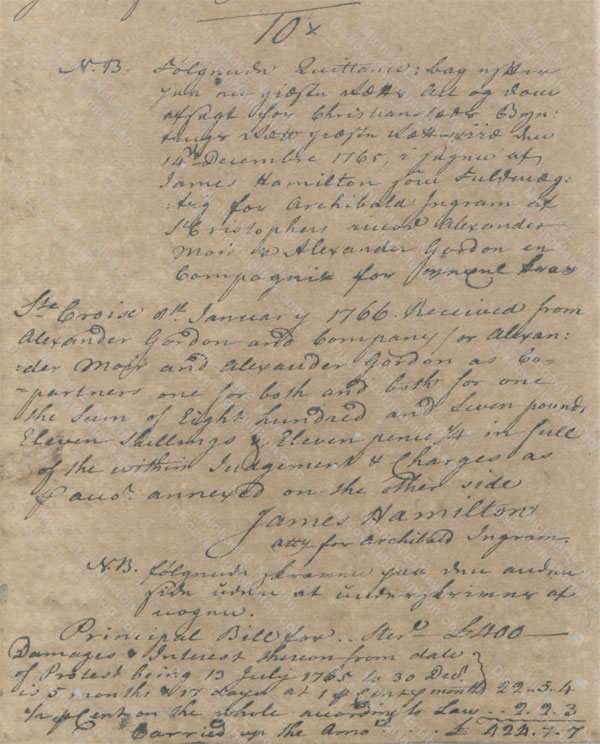 10x
N.B. Følgende Quittance: bag efter
paa en giæste Rætts Act og dom
afsagt for Christianstæds Byn:
tings Ræt giæste Rætt
14 Decembre 1765, i sagen af
James Hamilton som Fuldmæg:
:tig for Archibald Ingram af
St Cristophers Alexander
Moir & Alexander Gordon en
Compagnie for
Ste Croix January 1766. Received from
Alexander Gordon and Company or Alexan:
:der Moir and Alexander Gordon as Co-
-partners one for both and both for one
the Sum of Eight hundred and Seven pounds
Eleven Shillings & Eleven pence ¼ in full
of the within Judgement & Charges as
p accot. annexed on the other side
James Hamilton
atty for Archibald Ingram.
N.B. følgende skreven paa den anden
side uden at underskrives af
nogen.
Principal Bill for .. £400 —
Damages & Interest thereon from date
of Protest being 13 July 1765 to 30 Decr.
is 5 months & 17 Dayes at 1 p Cent p month 22 . 5 . 4
p Cent on the whole according to Law .. 2 . 2 . 3
Carried up the Amo ..... £ 424 . 7 . 7